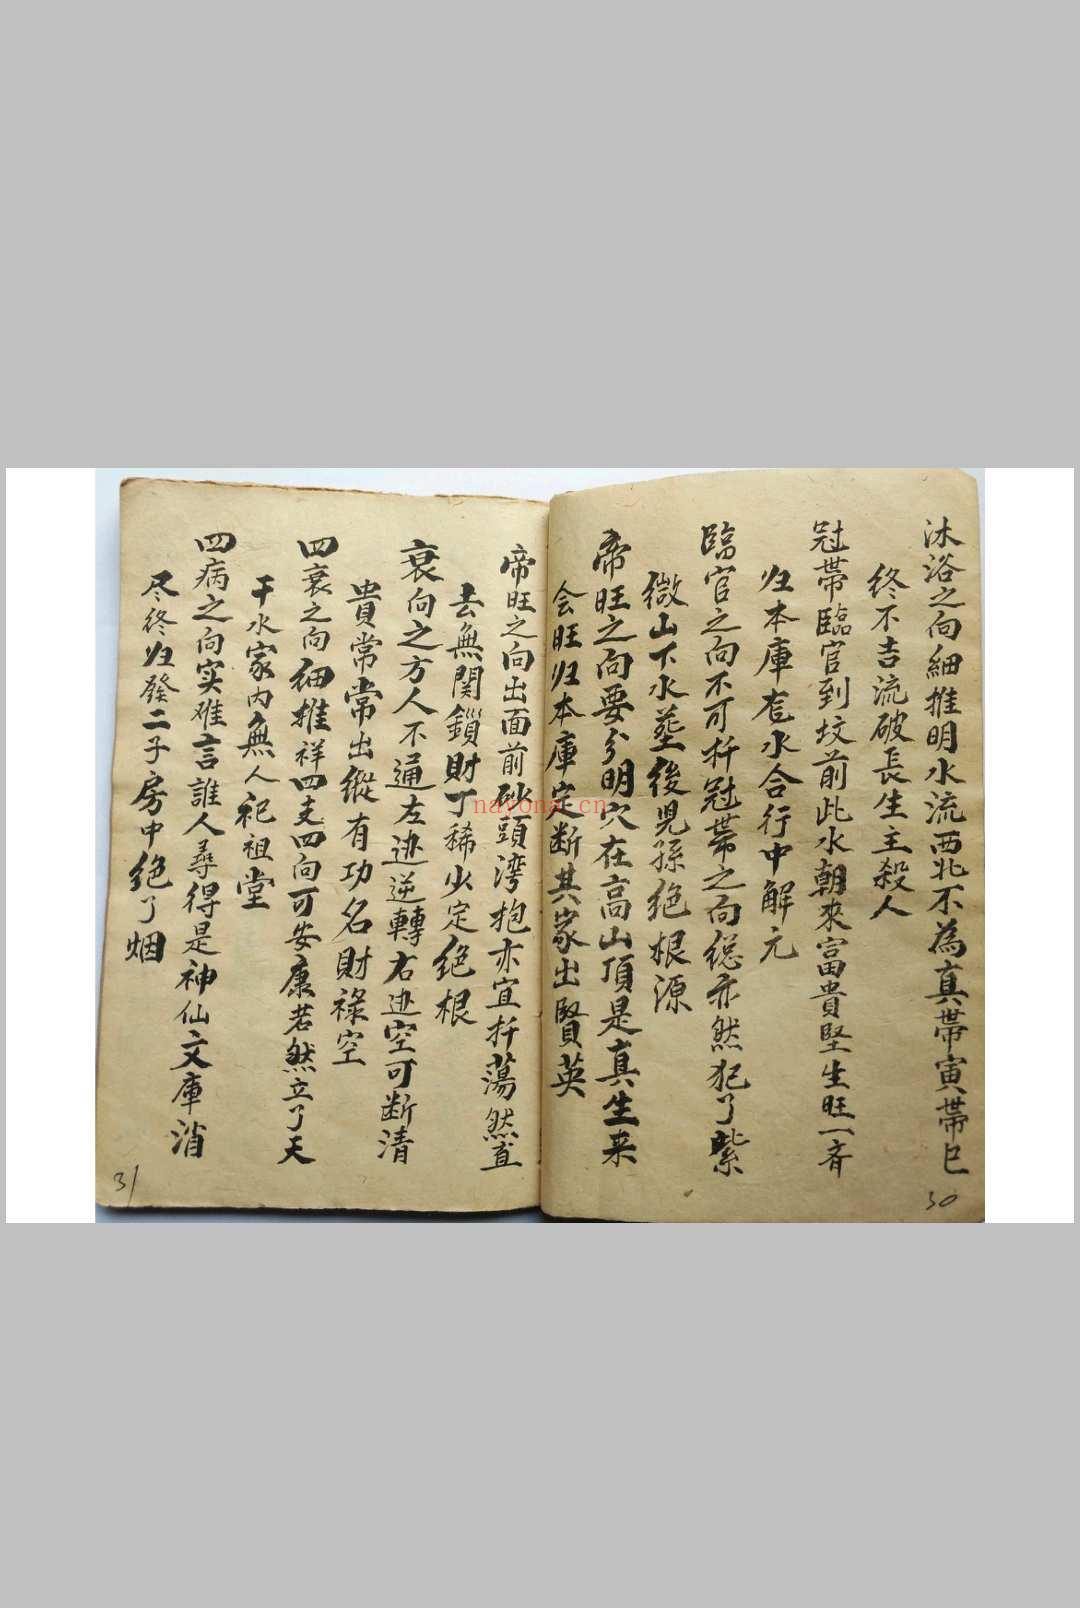 沐浴之向細推明水流西北不為真帶寅帶巳
終不吉流破長生主殺人
冠帶臨官到坟前此水朝來富貴堅生旺一斉
归本庫 水合行中解元
臨官之向不可扦冠帶之向總亦然犯了紫
微山下水塟後児孫绝根源
帝旺之向要分明穴在高山頂是真生来
会旺归本庫定断其家出賢英
30
帝旺之向出面前砂頭湾抱亦宜扦蕩然直
去無関鎖財丁稀少定绝根
衰向之方人不通左逆轉右 空可断清
貴常常出縱有功名財禄空
四衰之向细推祥四支四向可安康若然立了天
干水家内無人祀祖堂
四病之向实难言誰人尋得是神仙文庫消
尽终归發二子房中绝了烟
31
nayona.cn